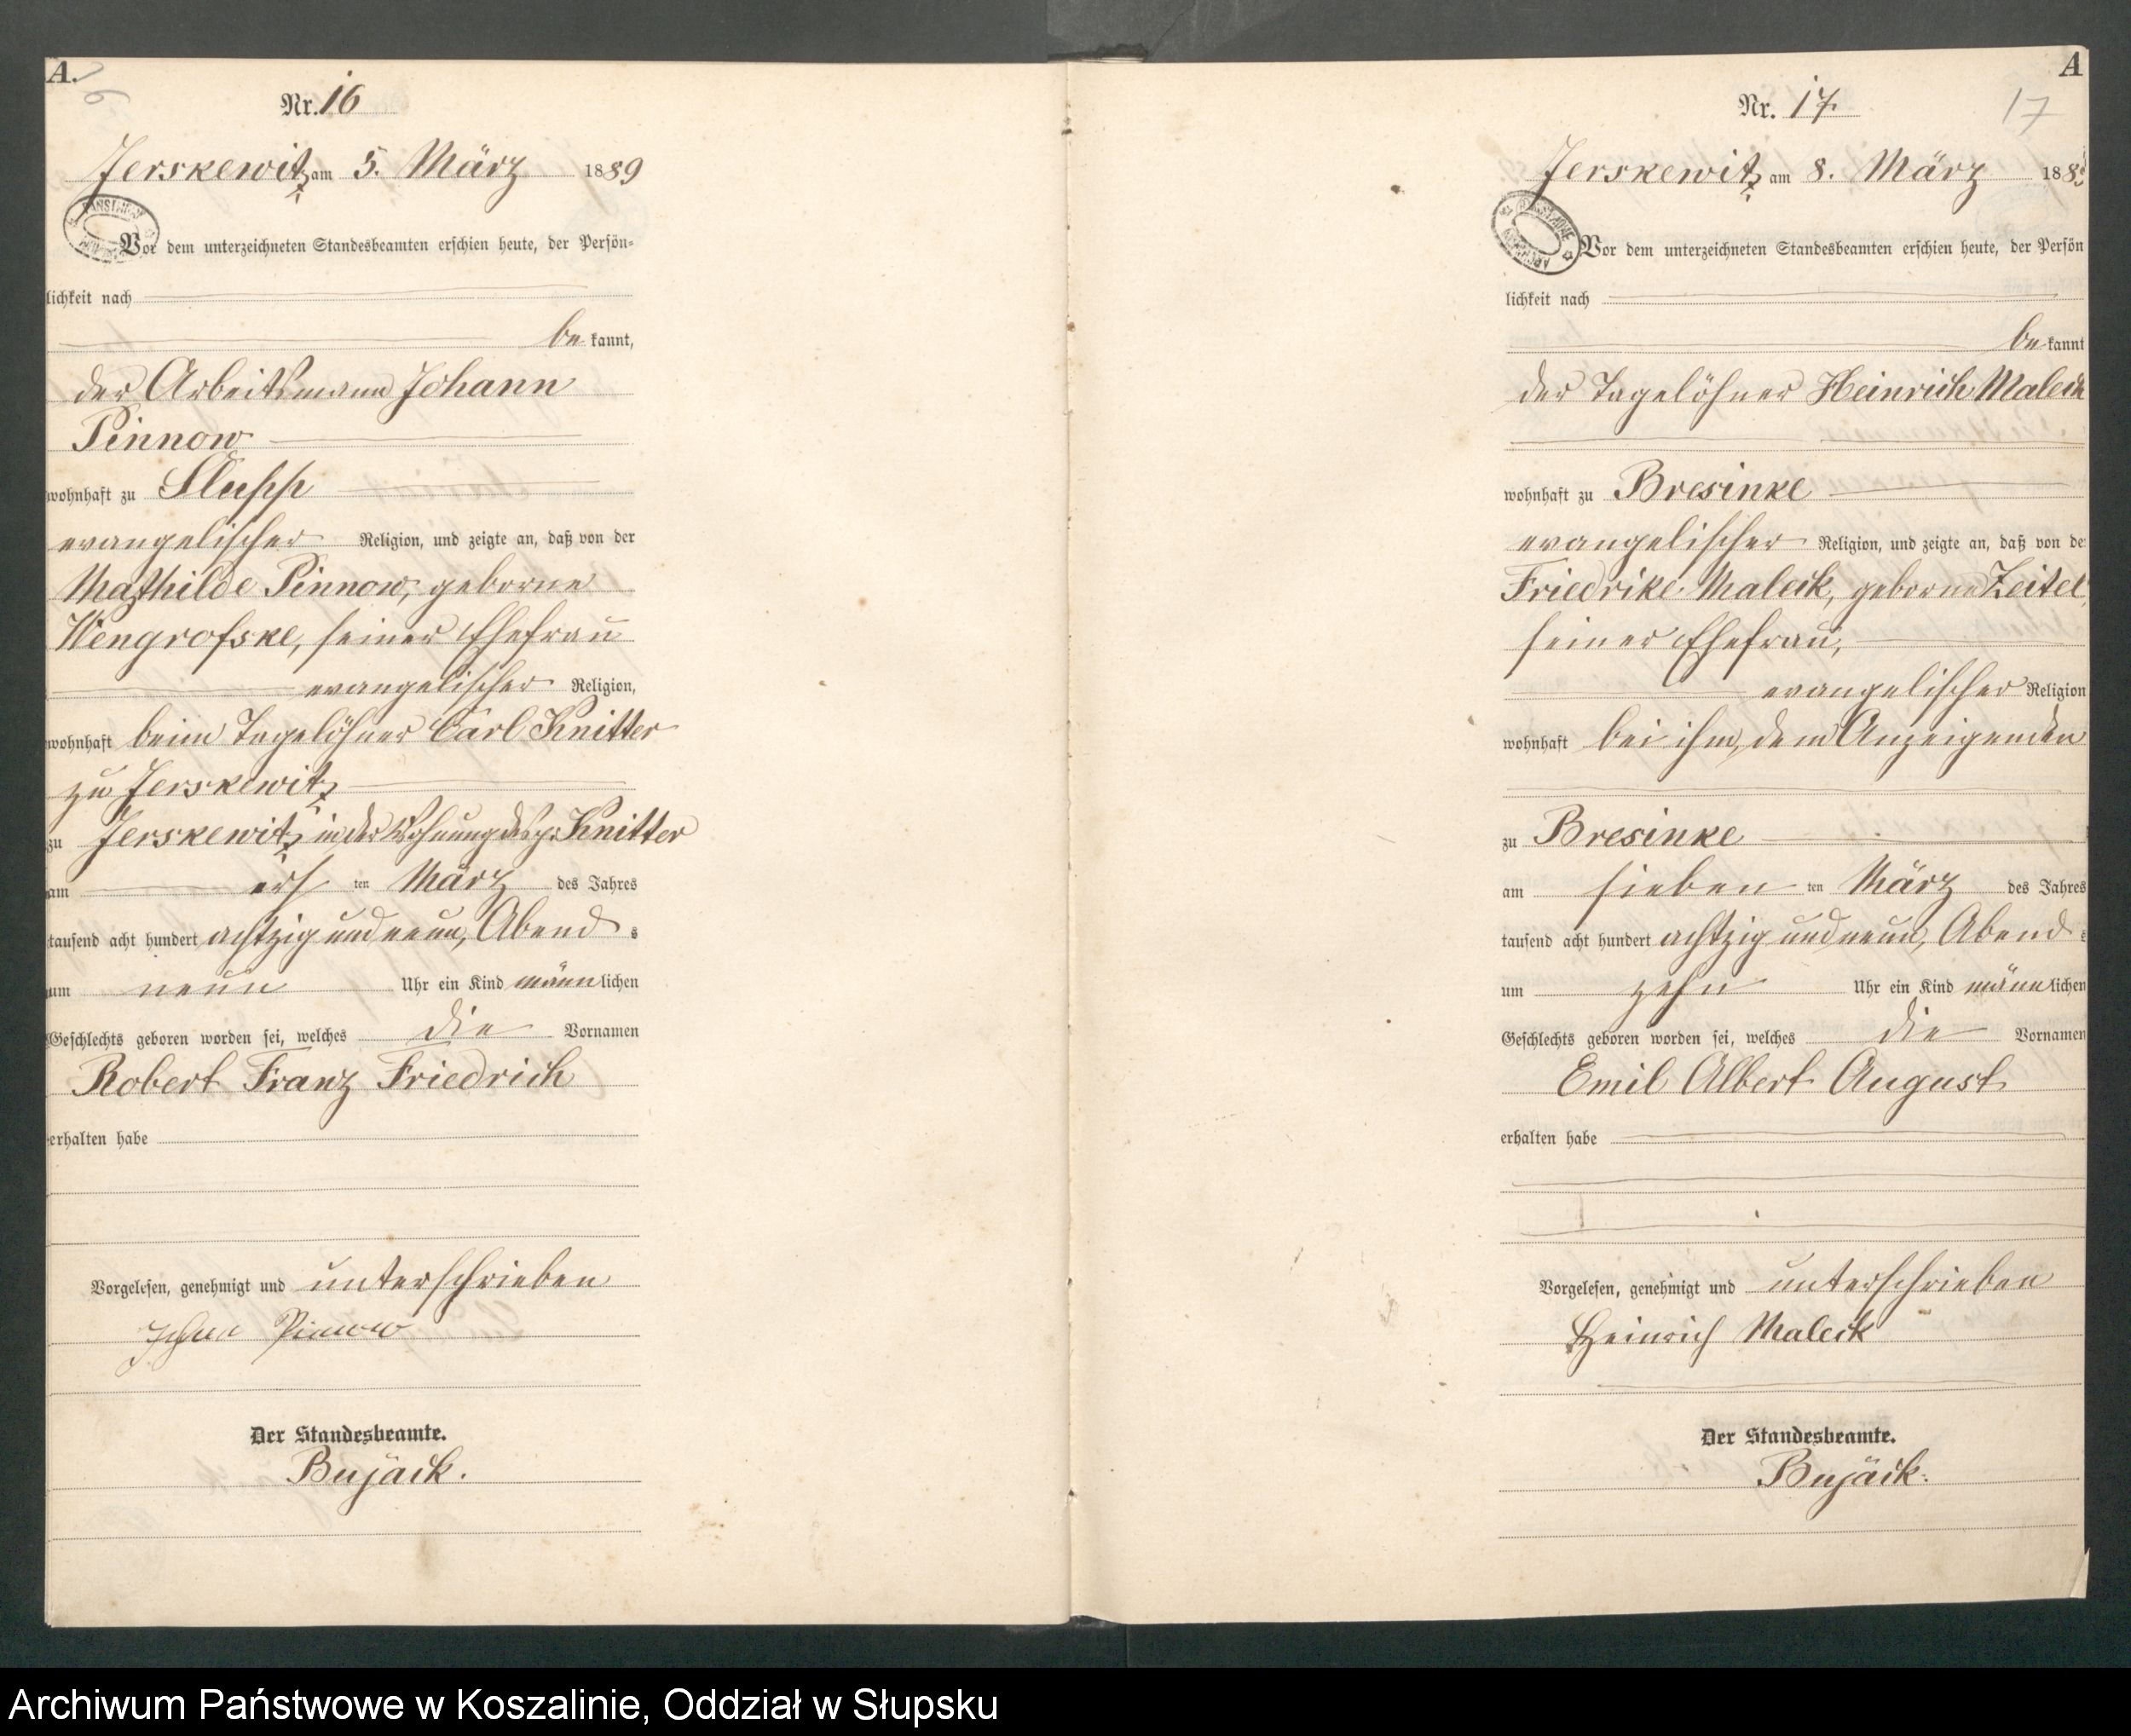 A.
16
Nr. 16
Jerskewitz am 5. März 1889
Vor dem unterzeichneten Standesbeamten erschien heute, der Persön-
lichkeit nach
be kannt,
der Arbeitsmann Johann
Pinnow
wohnhaft zu Slupp
evangelischer Religion, und zeigte an, daß von der
Mathilde Pinnow, geborne
Wengrofske, seiner Ehefrau
evangelischer Religion,
wohnhaft beim Tagelöhner Carl Knitter
zu Jerskewitz
zu Jerskewitz in der Wohnung des p. Knitter
am ers ten März des Jahres
tausend acht hundert achtzig und neun, Abend s
um neun Uhr ein Kind männ lichen
Geschlechts geboren worden sei, welches die Vornamen
Robert Franz Friedrich
erhalten habe
Vorgelesen, genehmigt und unterschrieben
Johan Pinnow
Der Standesbeamte.
Bujäck.
A
17
Nr. 17
Jerskewitz am 8. März 188
Vor dem unterzeichneten Standesbeamten erschien heute, der Persön
lichkeit nach
be kannt
der Tagelöhner Heinrich Maleck
wohnhaft zu Bresinke
evangelischer Religion, und zeigte an, daß von de
Friedrike Maleck, geborne Zeitel,
seiner Ehefrau,
evangelischer Religion
wohnhaft bei ihm, dem Anzeigenden
zu Bresinke
am sieben ten März des Jahres
tausend acht hundert achtzig und neun, Abend s
um zehn Uhr ein Kind männ lichen
Geschlechts geboren worden sei, welches die Vornamen
Emil Albert August
erhalten habe
Vorgelesen, genehmigt und unterschrieben
Heinrich Maleck
Der Standesbeamte.
Bujäck.
Archiwum Państwowe w Koszalinie, Oddział w Słupsku